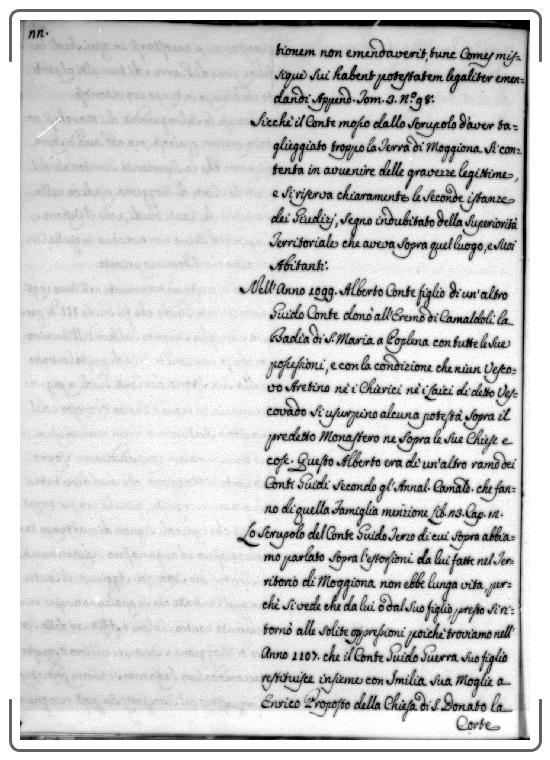 nn.
tionem non emendaverit, tunc Comes mis-
sique sui habent potestatem legaliter emen-
dandi Append. Tom. 3. N.º 98.
Sicchè il Conte mosso dallo scrupolo d'aver ta-
glieggiato troppo la Terra di Moggiona si con-
tenta in avvenire delle gravezze legittime,
e si riserva chiaramente le seconde istanze
dei Giudizj, segno indubitato della Superiorità
Territoriale che aveva sopra quel luogo, e suoi
Abitanti.
Nell'Anno 1099. Alberto Conte figlio di un'altro
Guido Conte donò all'Eremo di Camaldoli la
Badia di S. Maria a Poplena con tutte le sue
possessioni, e con la condizione che niun Vesco-
vo Aretino nè i Chierici nè i laici di detto Ves-
covado si usurpino alcuna potestà sopra il
predetto Monastero ne sopra le sue Chiese e
cose. Questo Alberto era di un'altro ramo dei
Conti Guidi secondo gl'Annal. Camald. che fan-
no di quella famiglia menzione Lib. 23. Cap. 12.
Lo scrupolo del Conte Guido Terzo di cui sopra abbia-
mo parlato sopra l'estorsioni da lui fatte nel Ter-
ritorio di Moggiona non ebbe lunga vita, per-
chè si vede che da lui o dal suo figlio presto si ri-
tornò alle solite oppressioni poichè troviamo nell'
Anno 1107. che il Conte Guido Guerra suo figlio
restituisce insieme con Imilia sua Moglie a
Enrico Proposto della Chiesa di S. Donato la
Corte